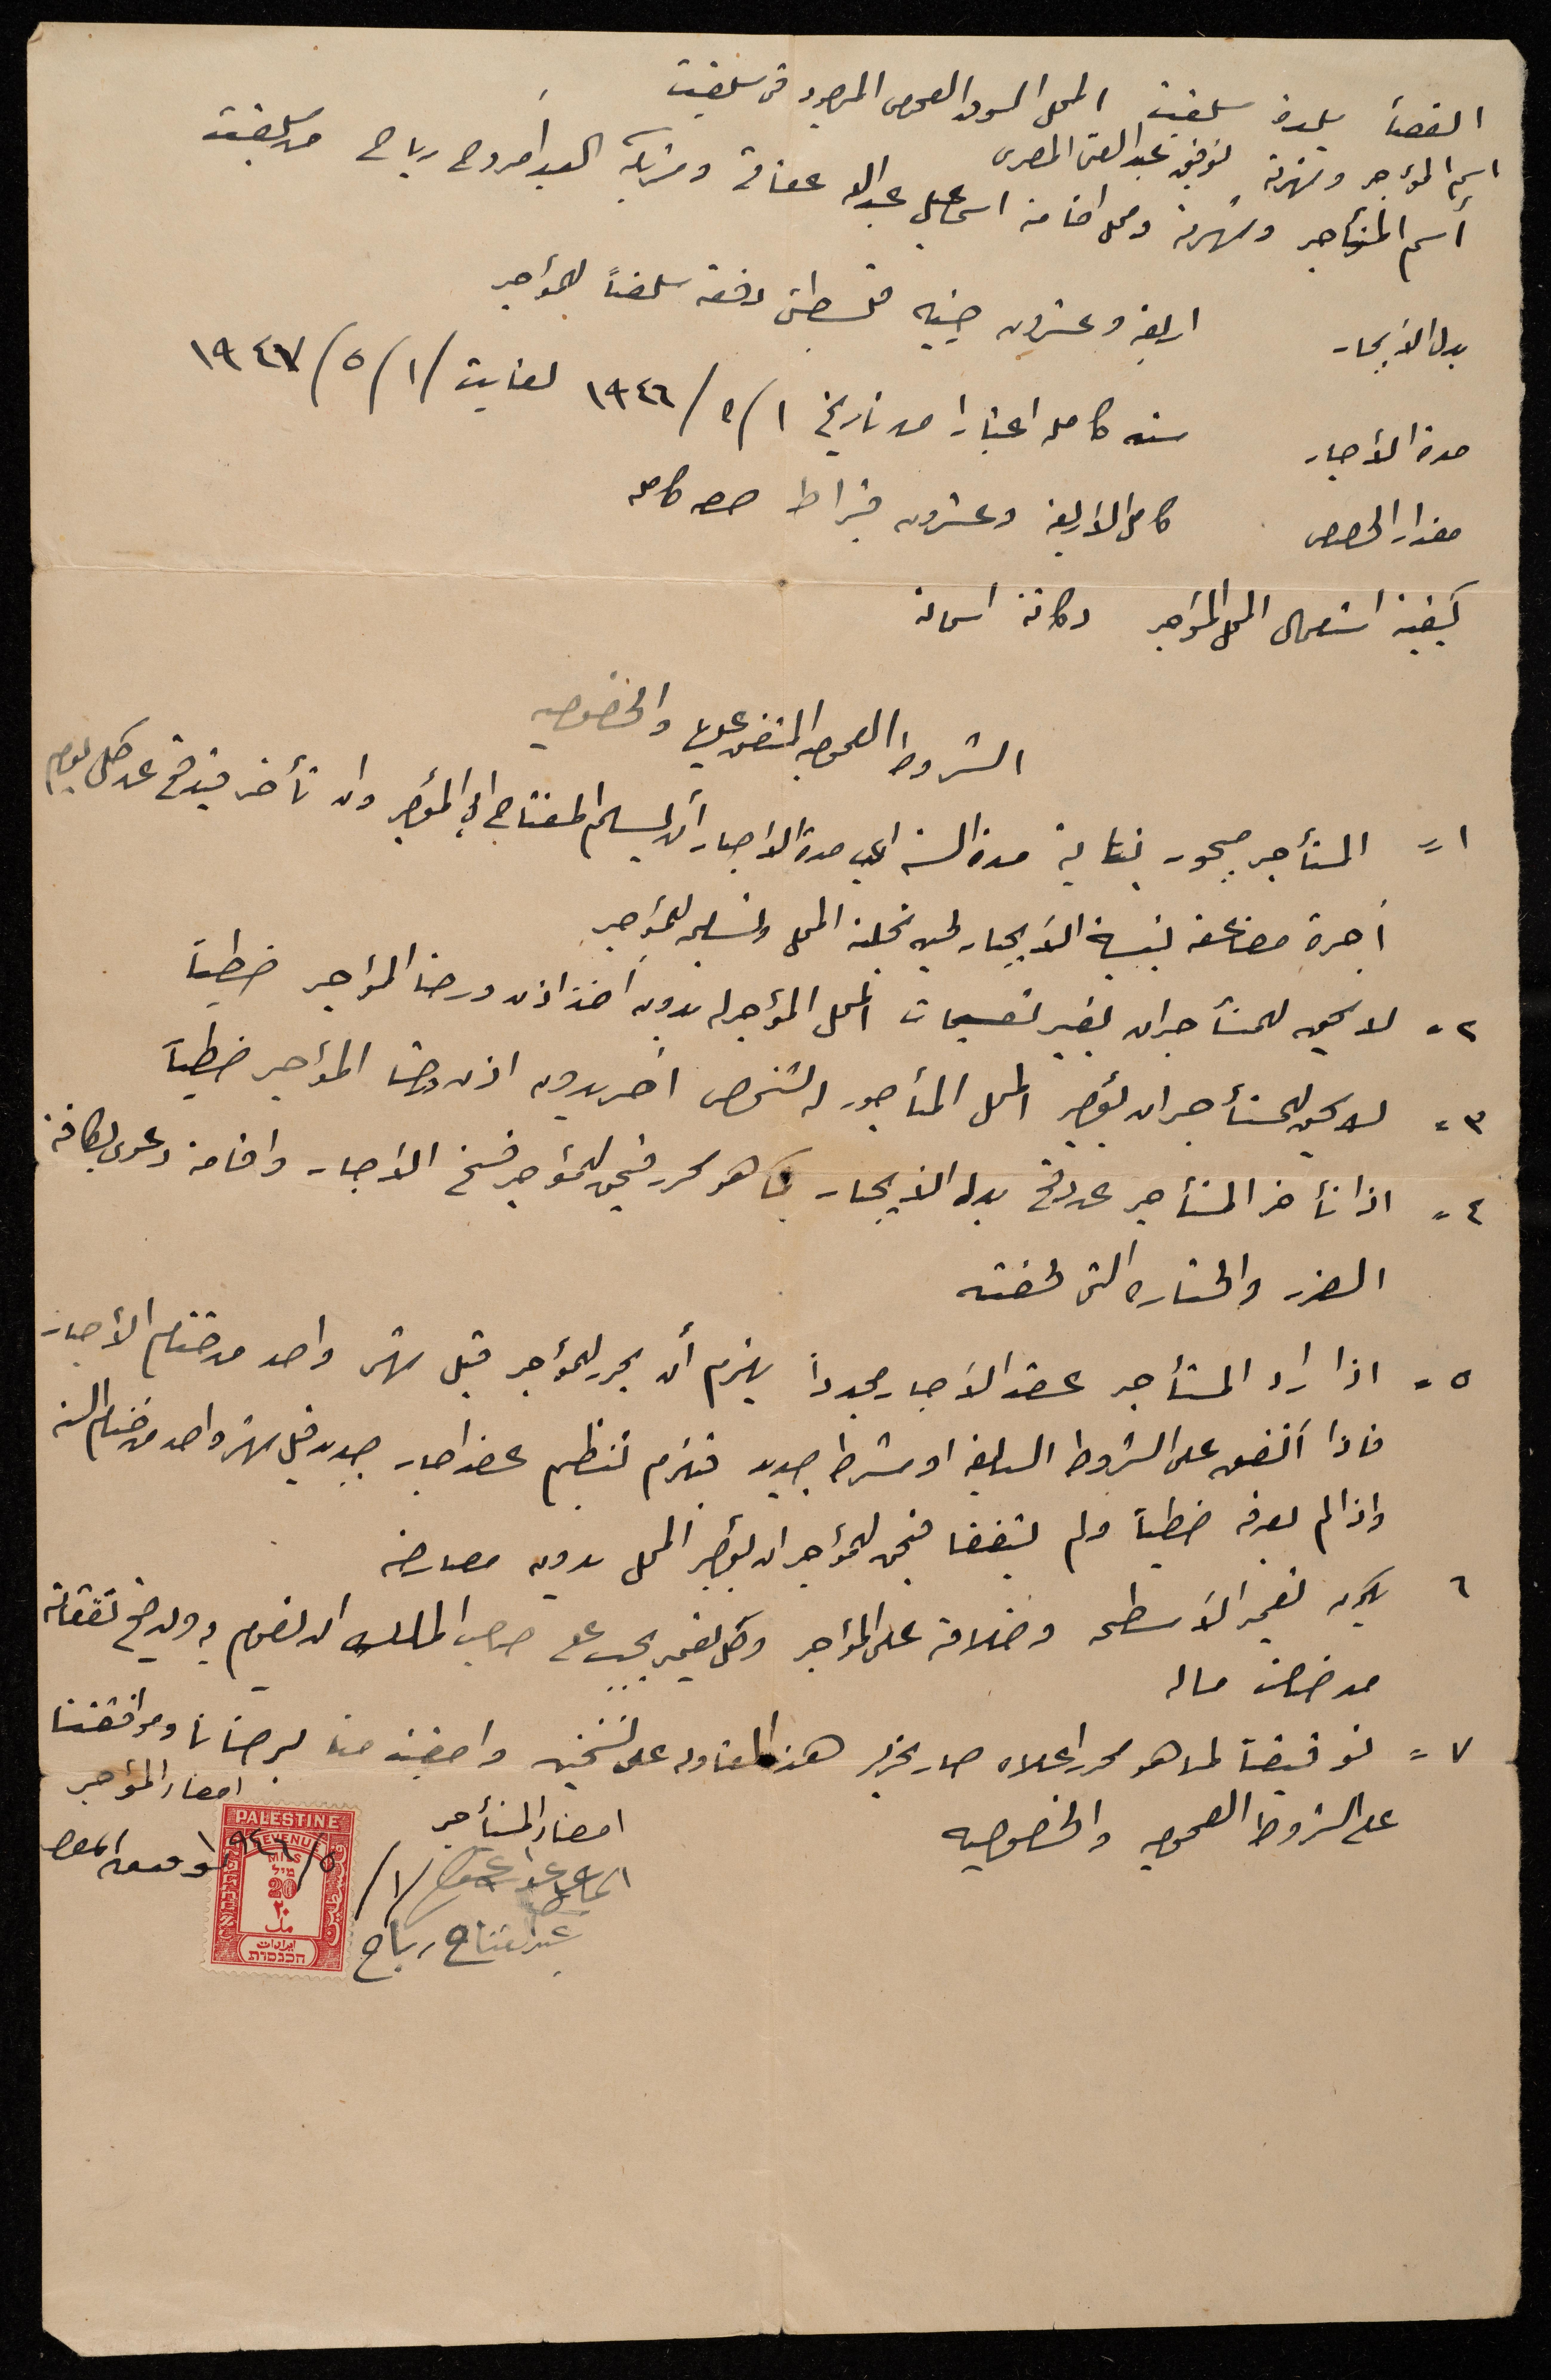 القضاء بلدة سلفيت المحل السوق العمومي الموجود في سلفيت
اسم المؤجر وشهرته توفيق عبد الغني المصري
أسم المستأجر وشهرته ومحل اقامته اسماعيل عبدالله عفانه وشريكه العبد امروح رباح من سلفيت
بدل الأيجار اربعة وعشرون جنيه فلسطيني دفعه سلفاً للمؤجر
مدة الأجار سنه كامله اعتبارا من تاريخ ١/٥/١٩٤٦ لغاية ١/٥/١٩٤٧
مقدار الحصص كامل الاربعة وعشرون قيراط حصه كامله
كيفية استعمال المحل المؤجر دكانة اسمانه
الشروط العموميه المتفق عليها والخصوصيه
١= المستأجر مجبور بنهاية مدة السنه اي مدة الأجار أن يسلم المفتاح الى المؤجر وان تأخر فيدفع عن كل يوم
أجرة مضاعفه بنسبة الأيجار لحين تخلية المحل وتسليمه للمؤجر
٢= لا يحق للمستأجر ان يغير تقسيمات المحل المؤجر له بدون أخذ اذن ورضا المؤجر خطياً
٣= لا يحق للمستأجر ان يؤجر المحل المأجور له لشخص اخر بدون اذن ورضا المؤجر خطياً
٤= اذا تأخر المستأجر عن دفع بدل الأيجار كما هو محرر فيحق للمؤجر فسخ الأجار واقامة دعوى بكافة
الضرر والخساره التي لحقته
٥= اذا اراد المستأجر عقد الأجار مجدداً يلزم أن يحرر للمؤجر قبل شهر واحد من ختام الأجار
فاذا أتفق على الشروط السابقه او شرط جديد فيلزم تنظيم عقد اجار جديد قبل شهر واحد من ختام السنه
واذا لم يعرفه خطياً ولم يتفقا فيحق للمؤجر ان يؤجر المحل بدون معارضه
٦ يكون تعمير الأسطحه وخلافه على المؤجر وكل تعمير يجب على صاحب الملك ان يقوم به ويدفع نفقاته
من خالص ماله
٧= توقيعاً لما هو محرر اعلاه صار تحرير هذه المقاوله على نسختين وامضيت منا برضانا وموافقتنا
على الشروط العموميه والخصوصيه
امضاء المستأجر
امضاء المؤجر
١/٥/١٩٤٦
عبدالفتاح رباح
PALESTINE
REVENUE
MILS
מיל
20
٢٠
مل
ايرادات
הכנסות